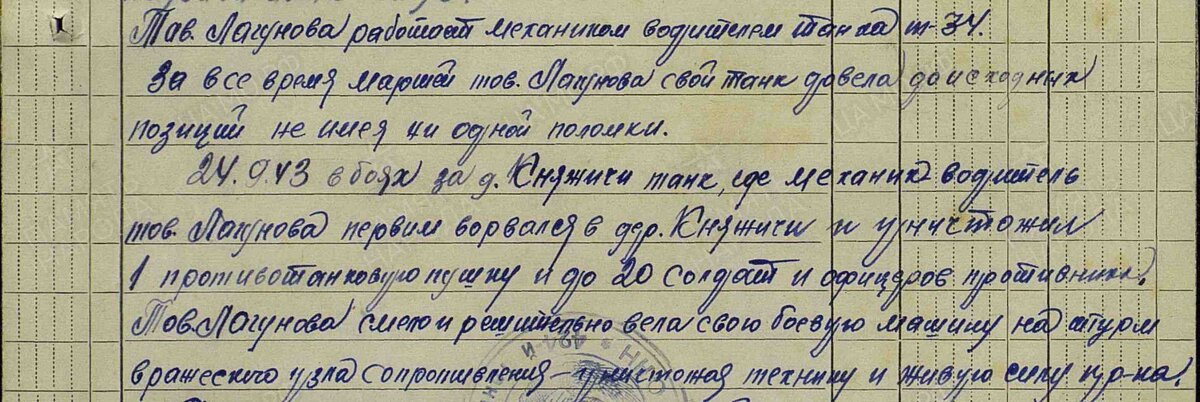 Тов. Лагунова работает механиком водителем танка т-34.
За все время маршей тов. Лагунова свой танк довела до исходных
позиций не имея ни одной поломки.
24.9.43 в боях за д. Княжичи танк, где механик-водитель
тов. Лагунова первым ворвался в дер. Княжичи и уничтожил
1 противотанковую пушку и до 20 солдат и офицеров противника.
Тов. Лагунова смело и решительно вела свою боевую машину на штурм
вражеского узла сопротивления уничтожая технику и живую силу пр-ка.